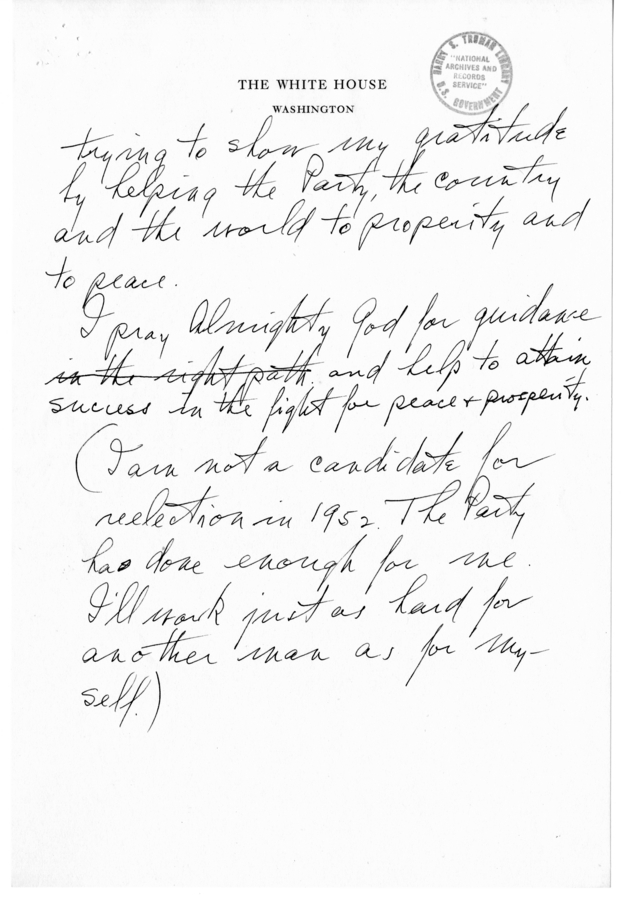 THE WHITE HOUSE
WASHINGTON
HARRY S. TRUMAN LIBRARY
"NATIONAL
ARCHIVES AND
RECORDS
SERVICE"
U.S. GOVERNMENT
trying to show my gratitude
by helping the Party, the country
and the world to properity and
to peace.
I pray Almighty God for guidance
in the right path and help to attain
success in the fight for peace + prosperity.
(I am not a candidate for
reelection in 1952. The Party
has done enough for me.
I'll work just as hard for
another man as for my-
self.)